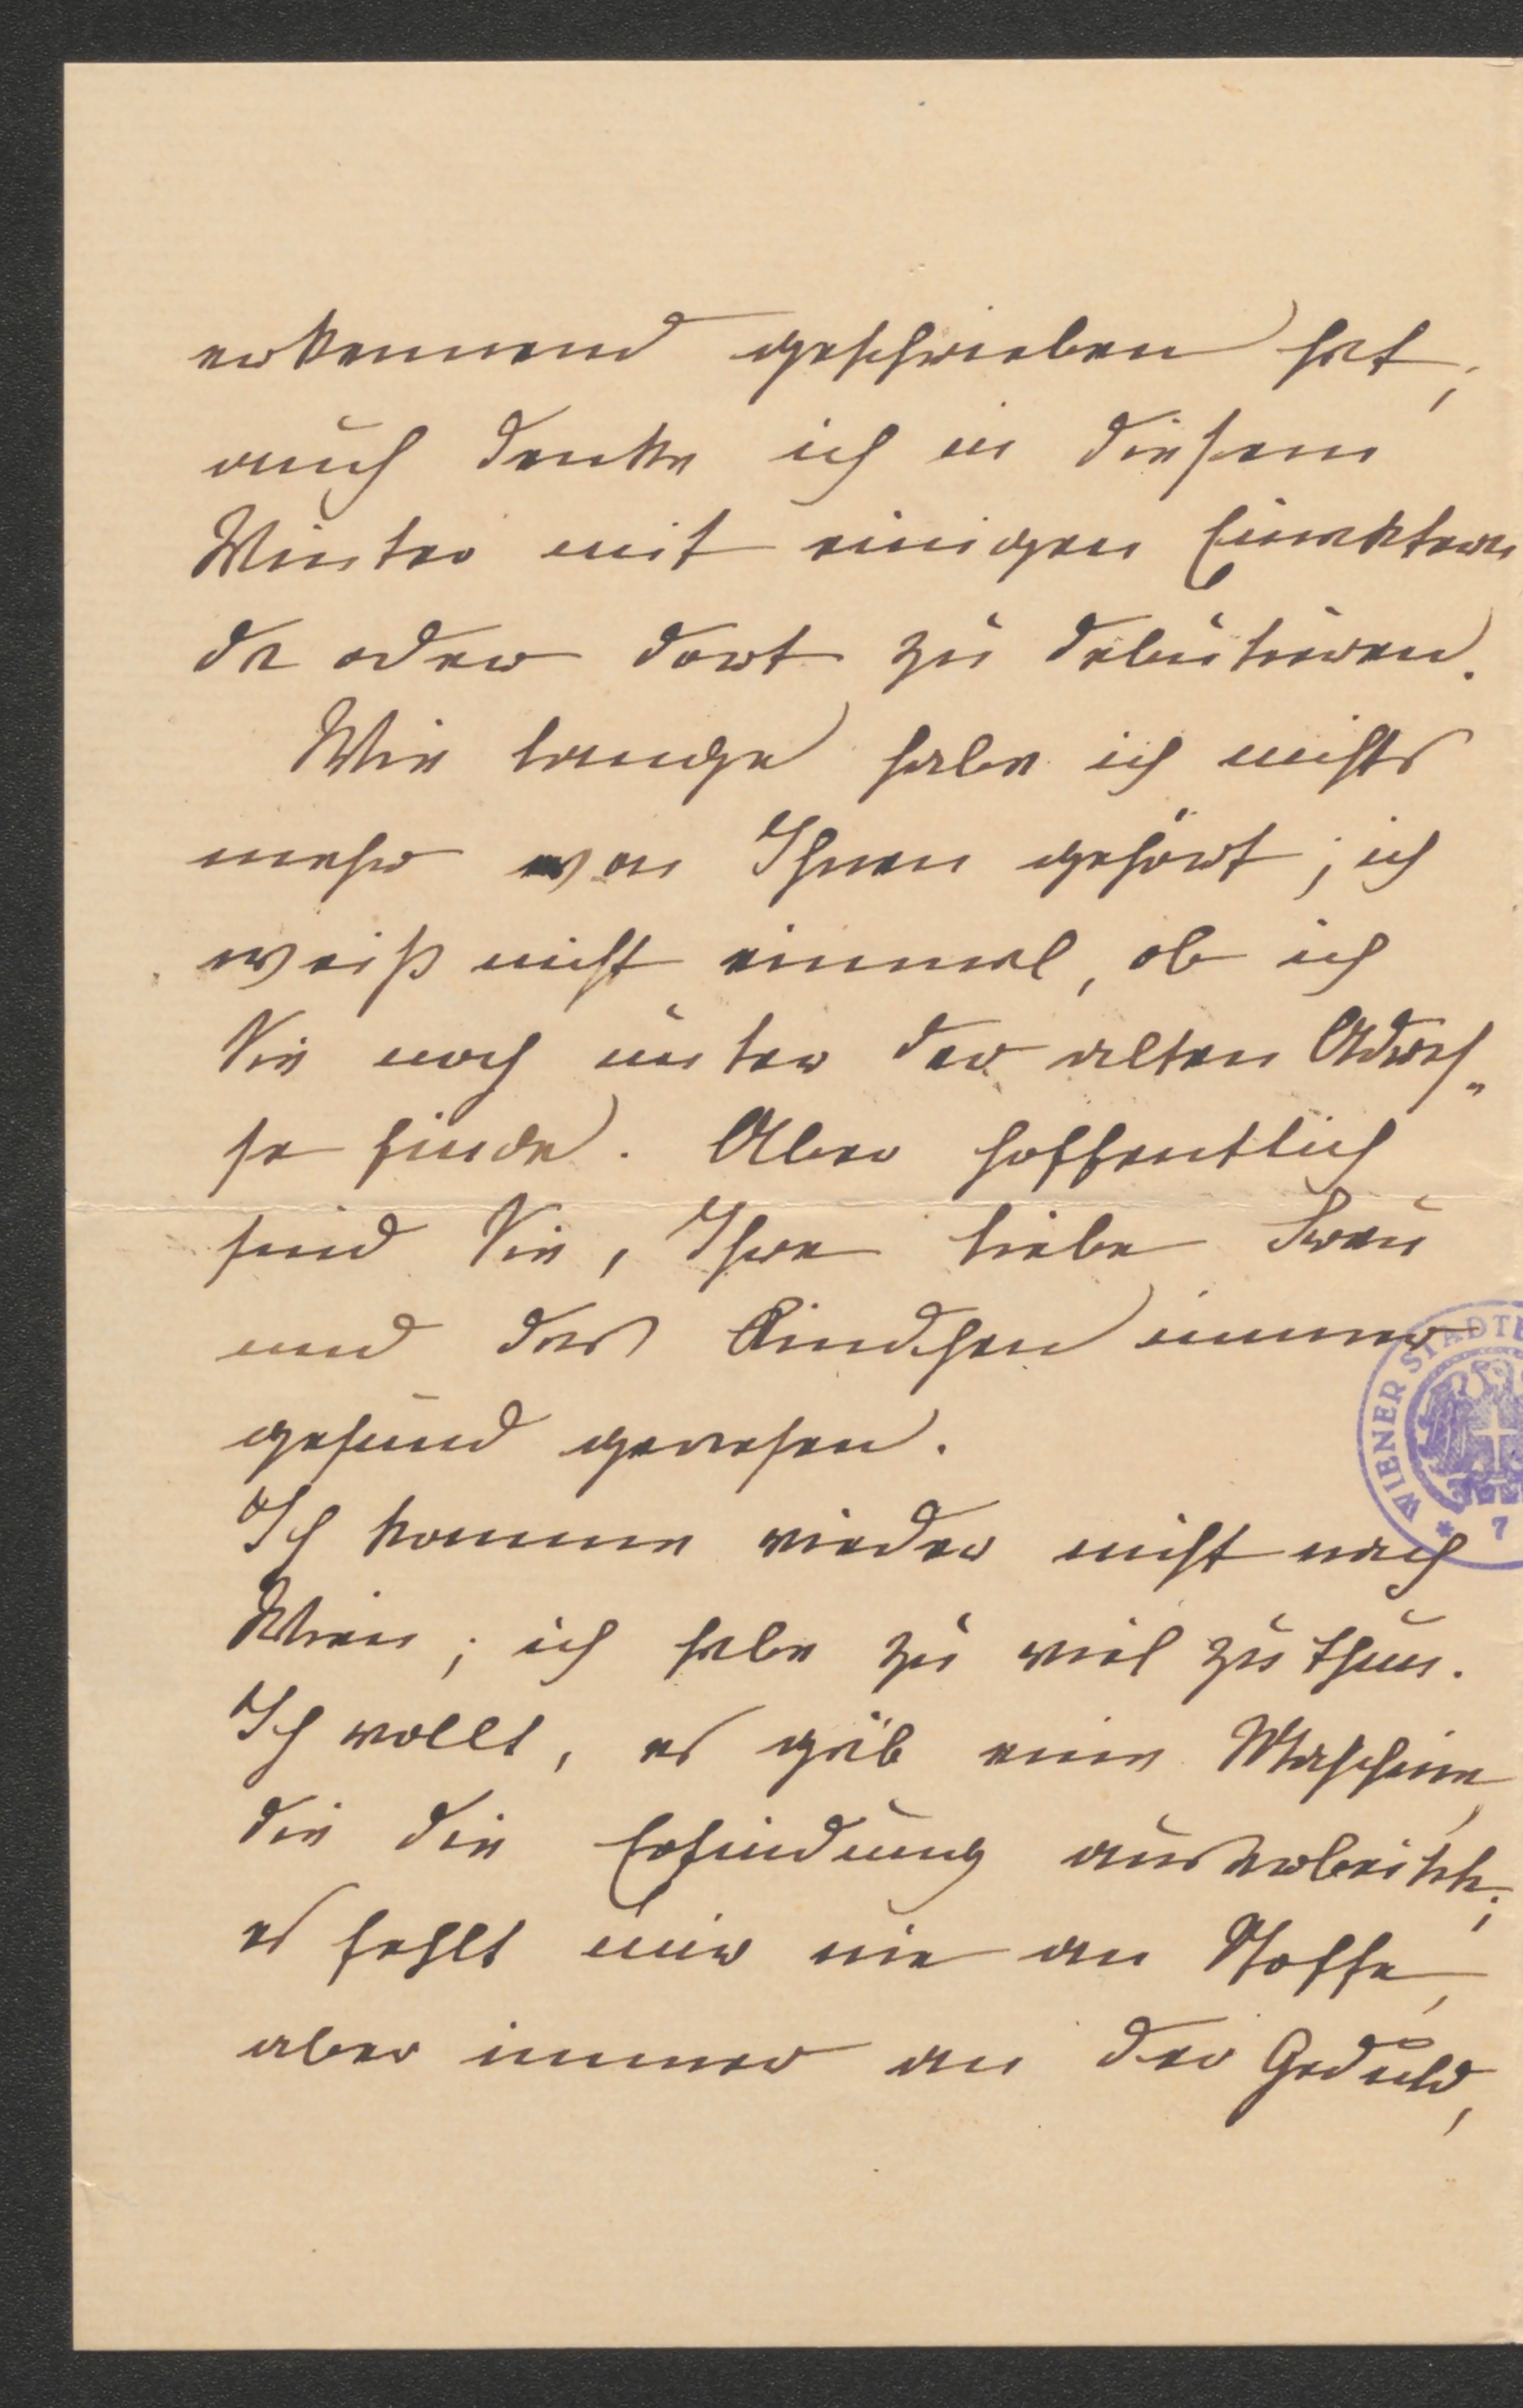 erkennend geschrieben hat;
auch denke ich in diesem
Winter mit einigen Einaktern
da oder dort zu debütieren.
Wie lange habe ich nichts
mehr von Ihnen gehört; ich
weiß nicht einmal, ob ich
Sie noch unter der alten Adres„
se finde. Aber hoffentlich
sind Sie, Ihre liebe Frau
und das Kindchen immer
gesund gewesen.
WIENER STADTB
* 7
Ich komme wieder nicht nach
Wien; ich habe zu viel zu thun.
Ich wollt, es gäb eine Maschine,
die die Erfindung ausarbeitete;
es fehlt mir nie an Stoffe,
aber immer an der Geduld,